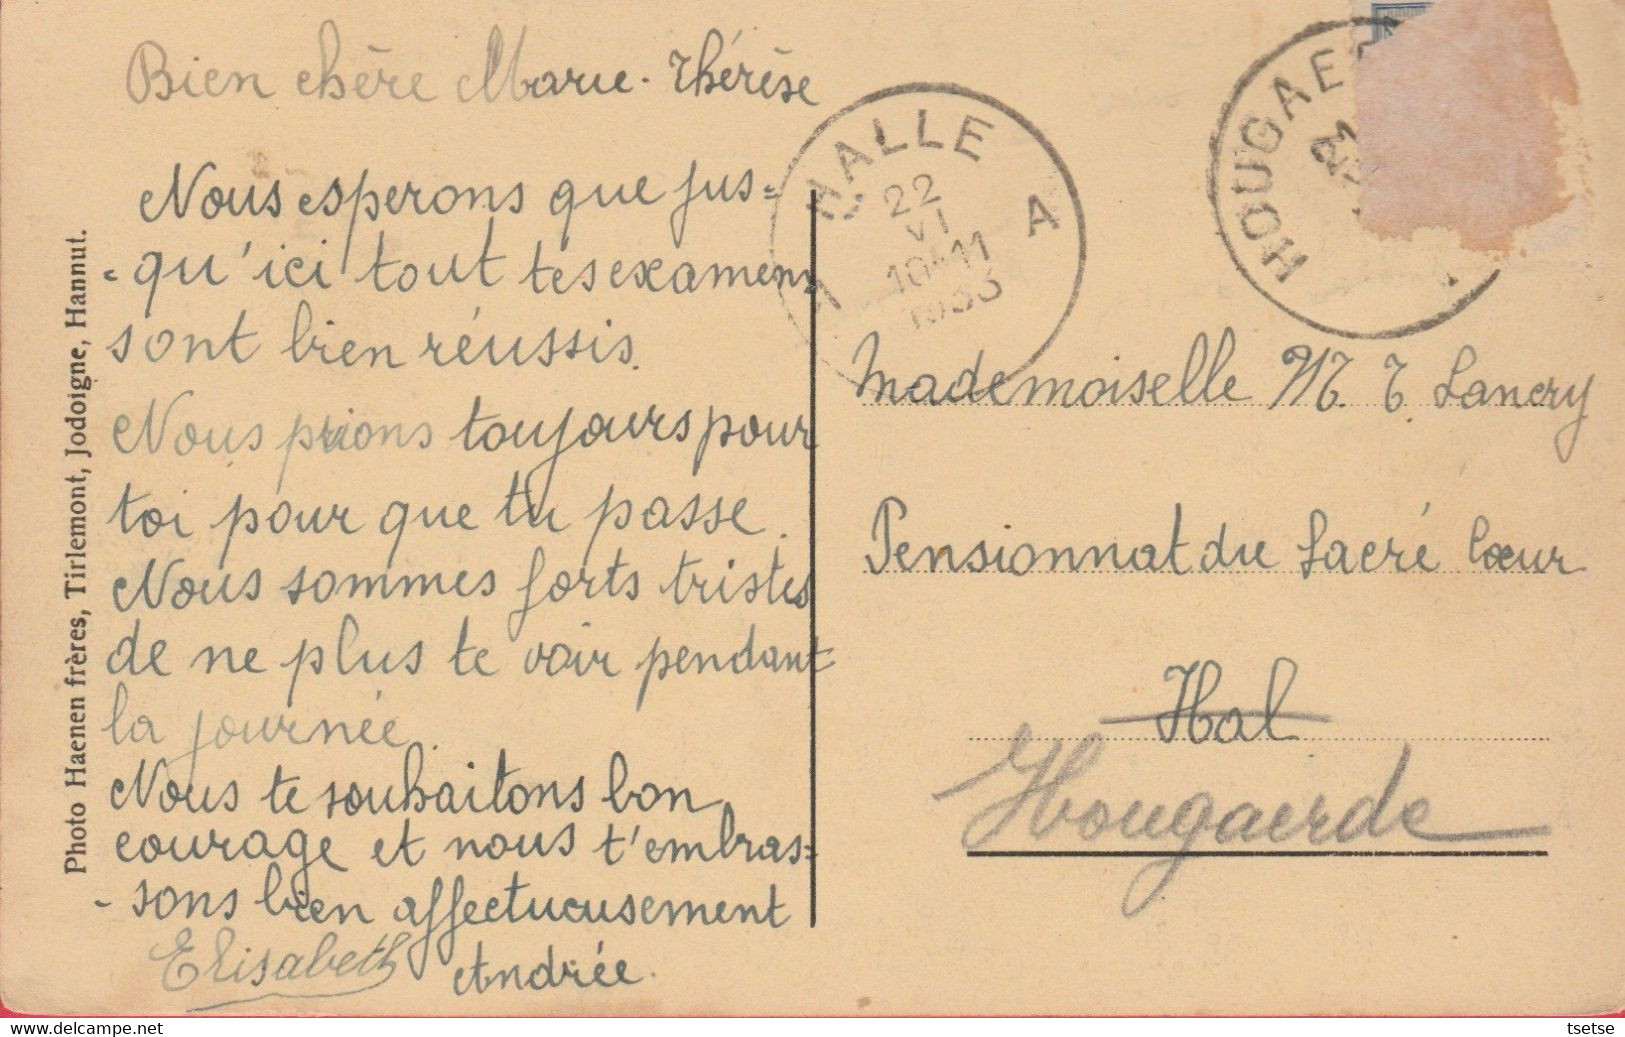 Bien chère Marie-Thérèse
Nous esperons que jus-
-qu'ici tout tes examens
sont bien réussis.
Nous prions toujours pour
toi pour que tu passe.
Nous sommes forts tristes
de ne plus te voir pendant
la journée.
Nous te souhaitons bon
courage et nous t'embras-
-sons bien affectueusement
Elisabeth Andrée.
Photo Haenen frères, Tirlemont, Jodoigne, Hannut.
HALLE
A
22
VI
10-11
1933
1
HOUGAE
Mademoiselle M. T. Lancry
Pensionnat du Sacré Cœur
Hal
Hougaerde
www.delcampe.net
tsetse